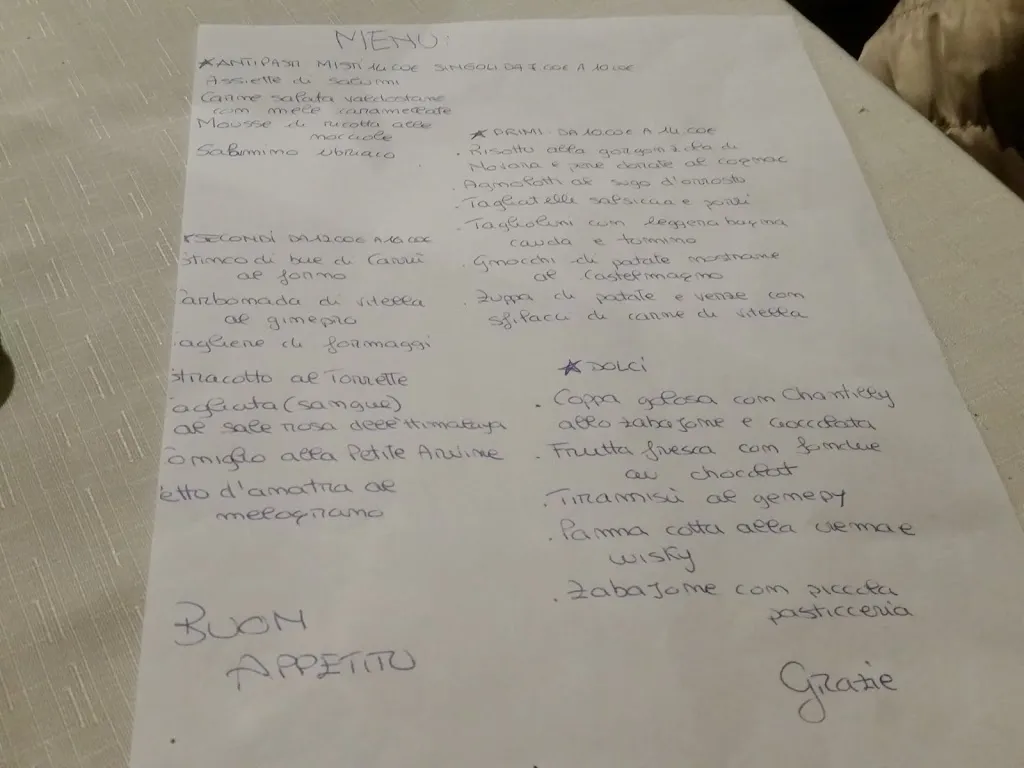 MENU:
ANTIPASTI MISTI 14.00€ SINGOLI DA 7.00€ A 10.00€
Assiette di salumi
Carne salata valdostana
con mele caramellate
Mousse di ricotta alle
nocciole
Salamino ubriaco
PRIMI DA 10.00€ A 14.00€
. Risotto alla gorgonzola di
Novara e pere dorate al cognac
. Agnolotti al sugo d'arrosto
. Tagliatelle salsiccia e porri
. Tagliolini con leggera bagna
cauda e tomino
. Gnocchi di patate nostrane
al Castelmagno
. Zuppa di patate e verze con
sfilacci di carne di vitella
SECONDI DA 12.00€ A 16.00€
stinco di bue di Carrù
al forno
arbonada di vitella
al ginepro
agliere di formaggi
stracotto al Torrette
agliata (sangue)
al sale rosa dell'Himalaya
oniglio alla Petite Arvine
etto d'anatra al
melograno
DOLCI
. Coppa golosa con Chantilly
allo zabajone e cioccolata
. Frutta fresca con fondue
au chocolat
. Tiramisù al genepy
. Panna cotta alla crema e
wisky
. Zabajone con piccola
pasticceria
BUON
APPETITO
Grazie